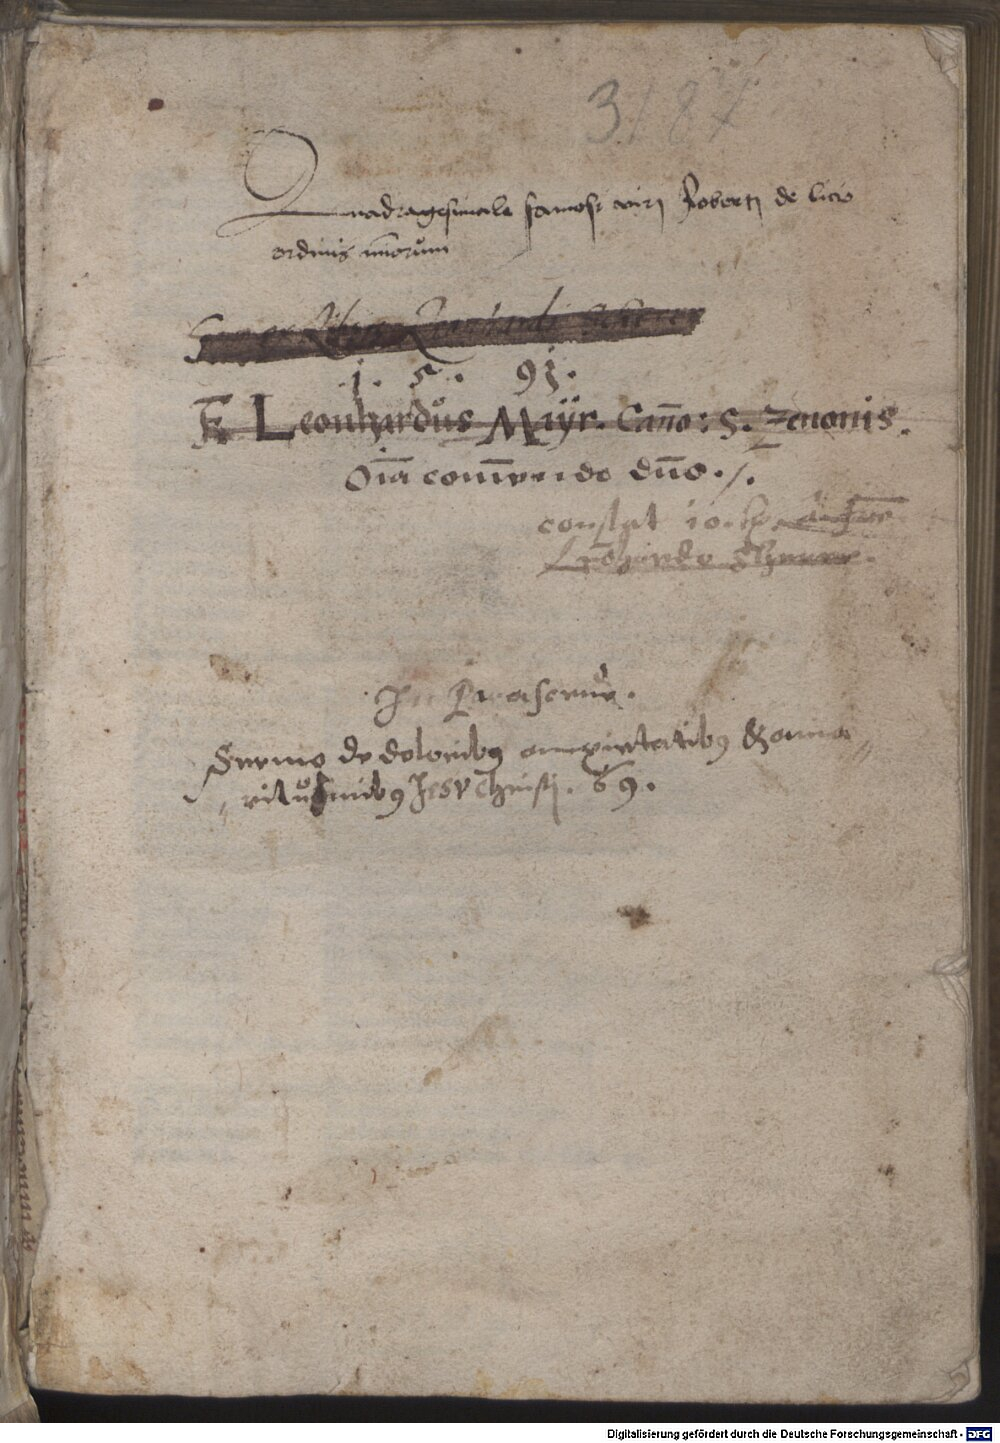 3187
Quadragesimale famosi viri Roberti de licio
ordinis minorum
Liber Leonhardi
1. 5. 91.
F. Leonhardůs Maÿr. Cano: S. Zenonis.
Oia comendo dno ./.
constat 10.
In Parasceue.
Sermo de doloribus anxietatibus & ama„
„ritůdinibus Jesv Christi. 69.
Digitalisierung gefördert durch die Deutsche Forschungsgemeinschaft - DFG